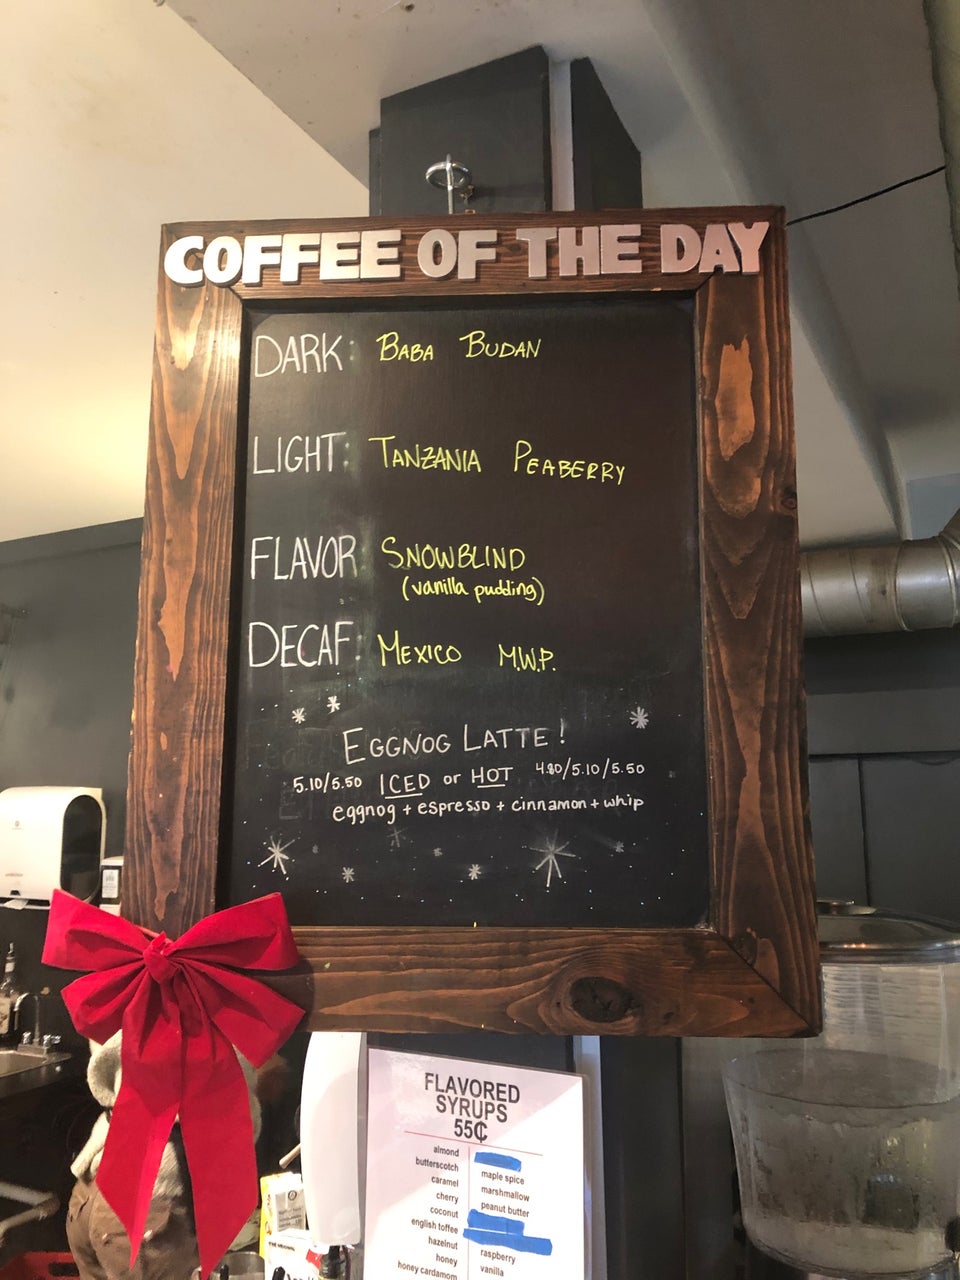 COFFEE OF THE DAY
DARK: BABA BUDAN
LIGHT: TANZANIA PEABERRY
FLAVOR: SNOWBLIND
(vanilla pudding)
DECAF: MEXICO M.W.P.
EGGNOG LATTE!
5.10/5.50 ICED or HOT 4.80/5.10/5.50
eggnog + espresso + cinnamon + whip
FLAVORED
SYRUPS
55¢
almond
butterscotch
caramel
cherry
coconut
english toffee
hazelnut
honey
honey cardamom
maple spice
marshmallow
peanut butter
raspberry
vanilla